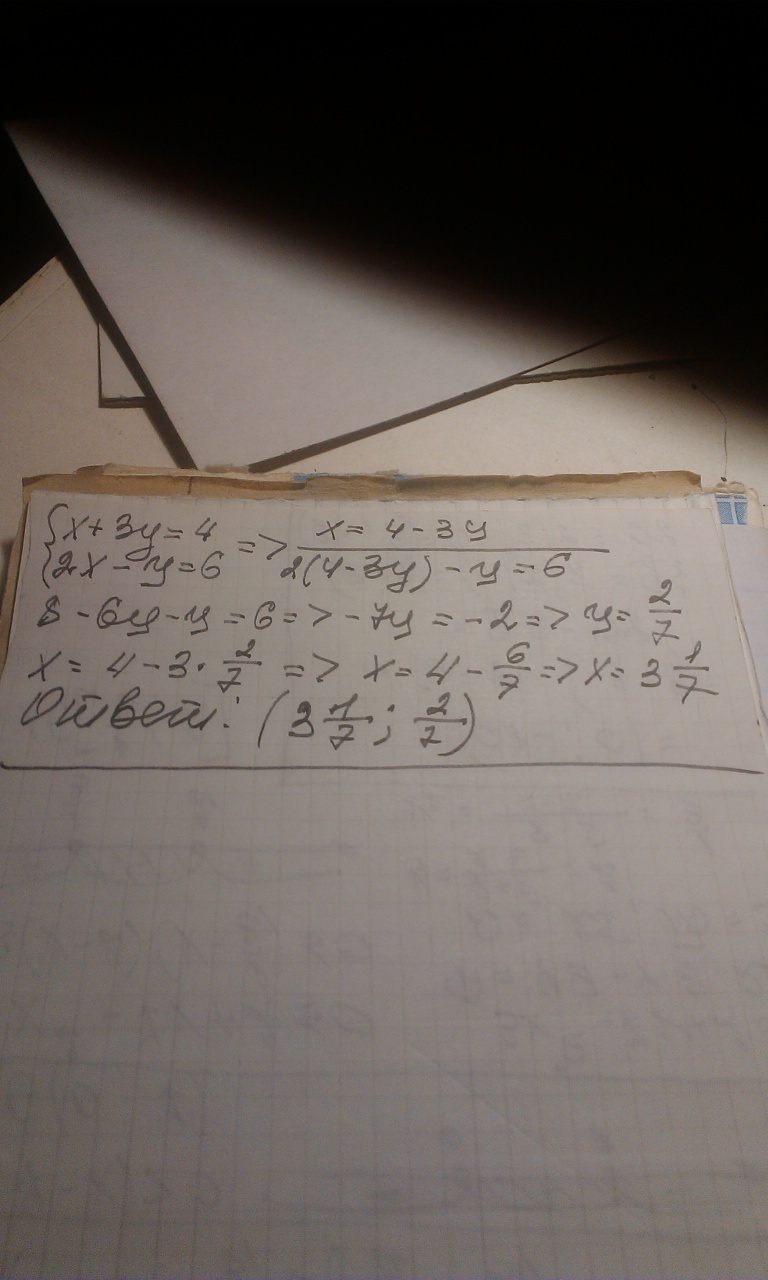 {x+3y=4 => x= 4-3y
{2x-y=6 2(4-3y)-y=6
8-6y-y=6=>-7y=-2=>y=2/7
x=4-3·2/7 => x=4-6/7=>x=3 1/7
Ответ: (3 1/7; 2/7)